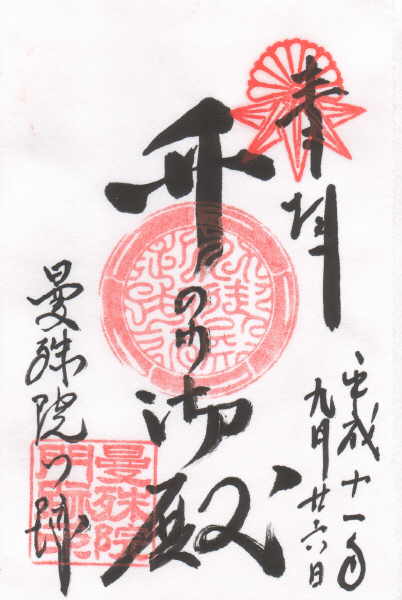 奉拝
平成十一年
九月廿六日
の
御殿
曼殊院門跡
曼殊院
門跡